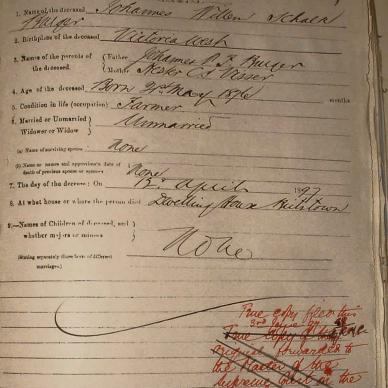 1. Name of the deceased Johannes Willem Schalk
Burger
2. Birthplace of the deceased Victoria West
3. Names of the parents of the deceased. { Father Johannes P. J. Burger
Mother Hester C. S. Visser
4. Age of the deceased Born 2nd May 1876 months
5. Condition in life (occupation) Farmer
6. Married or Unmarried
Widower or Widow } Unmarried
(a) Name of surviving spouse None
(b) Name or names and approximate date of
death of previous spouse or spouses None
7. The day of the decease: On April 1897
8. At what house or where the person died Dwelling House
9.—Names of Children of deceased, and
whether majors or minors } None
(Stating separately those born of different
marriages.)
True copy filed this
3rd
True copy of
original forwarded to
the Master of the
Supreme Court on the